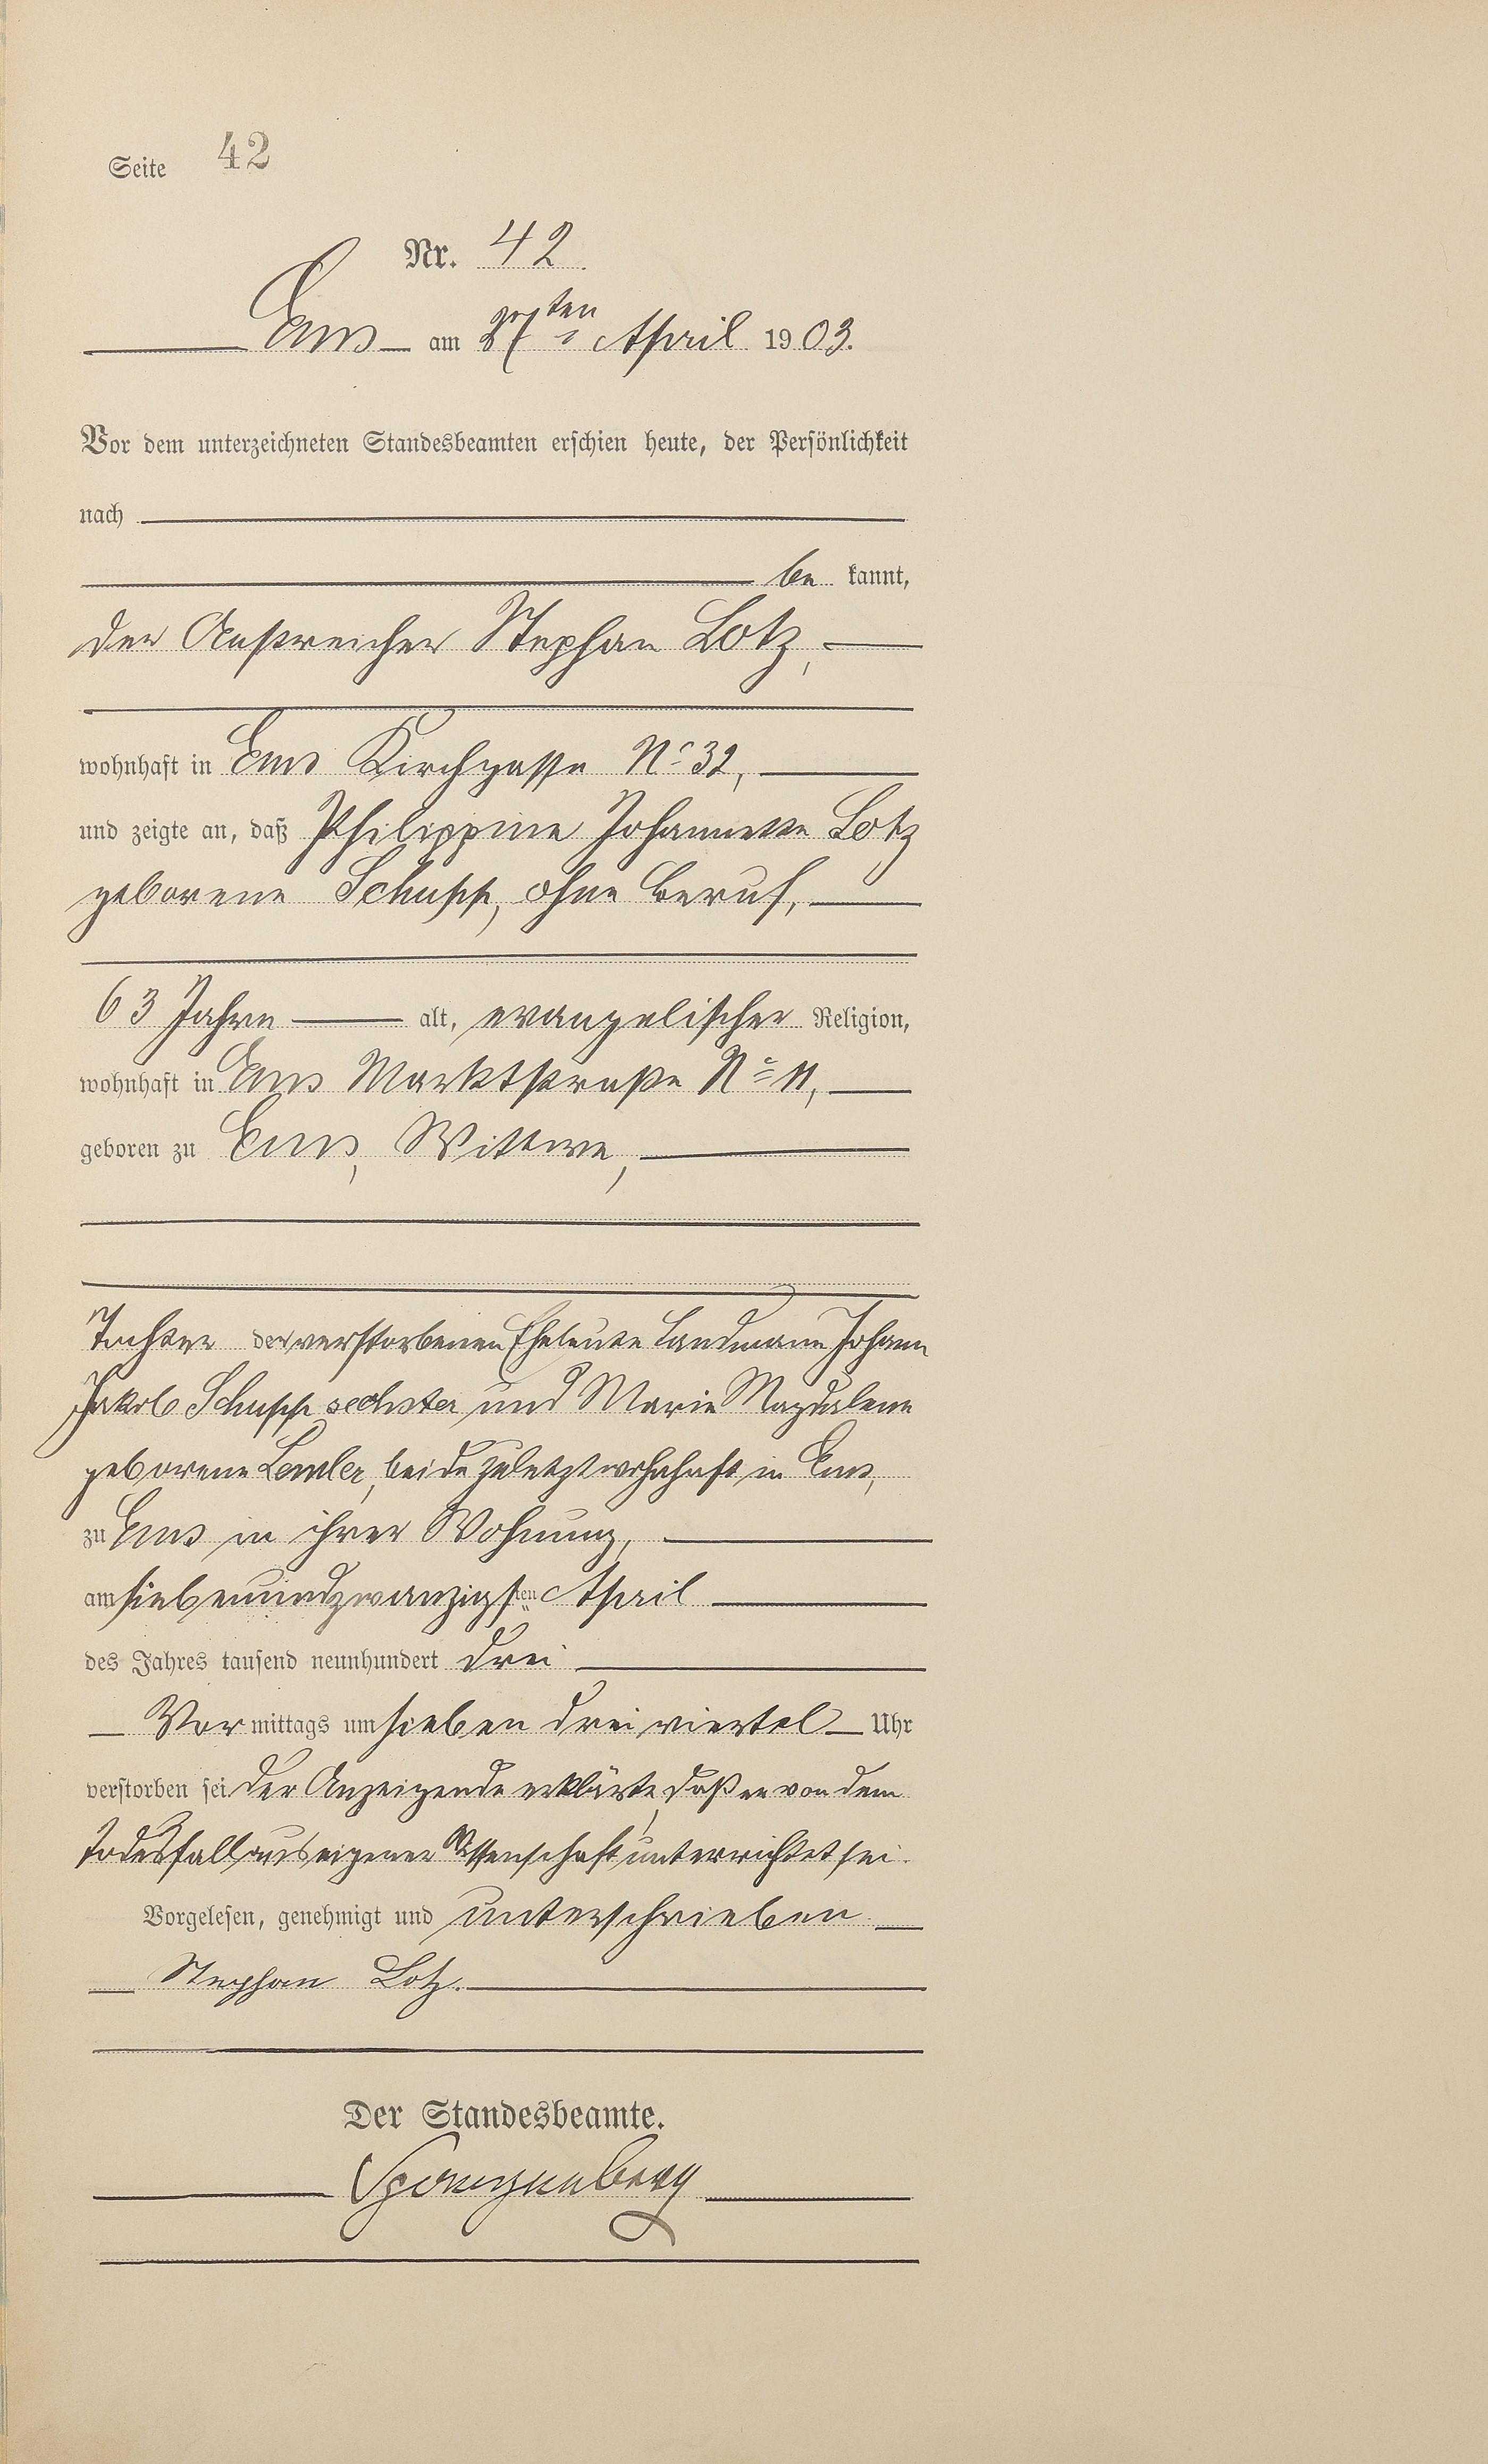 Seite 42
Nr. 42
Ems am 27ten April 1903.
Vor dem unterzeichneten Standesbeamten erschien heute, der Persönlichkeit
nach
be kannt,
der Anstreicher Stephan Lotz,
wohnhaft in Ems Kirchgasse No 32,
und zeigte an, daß Philippine Johannette Lotz
geborene Schupp, ohne Beruf,
63 Jahre alt, evangelischer Religion,
wohnhaft in Ems Marktstraße No 11,
geboren zu Ems, Wittwe,
Tochter der verstorbenen Eheleute Landmann Johann
Jakob Schupp sechster und Marie Magdalene
geborene Lemler, beide zuletzt wohnhaft in Ems,
zu Ems in ihrer Wohnung,
am siebenundzwanzigsten April
des Jahres tausend neunhundert drei
Vor mittags um sieben drei viertel Uhr
verstorben sei. Der Anzeigende erklärte, daß er von dem
Todesfall aus eigener Wissenschaft unterrichtet sei.
Vorgelesen, genehmigt und unterschrieben
Stephan Lotz.
Der Standesbeamte.
Spangenberg